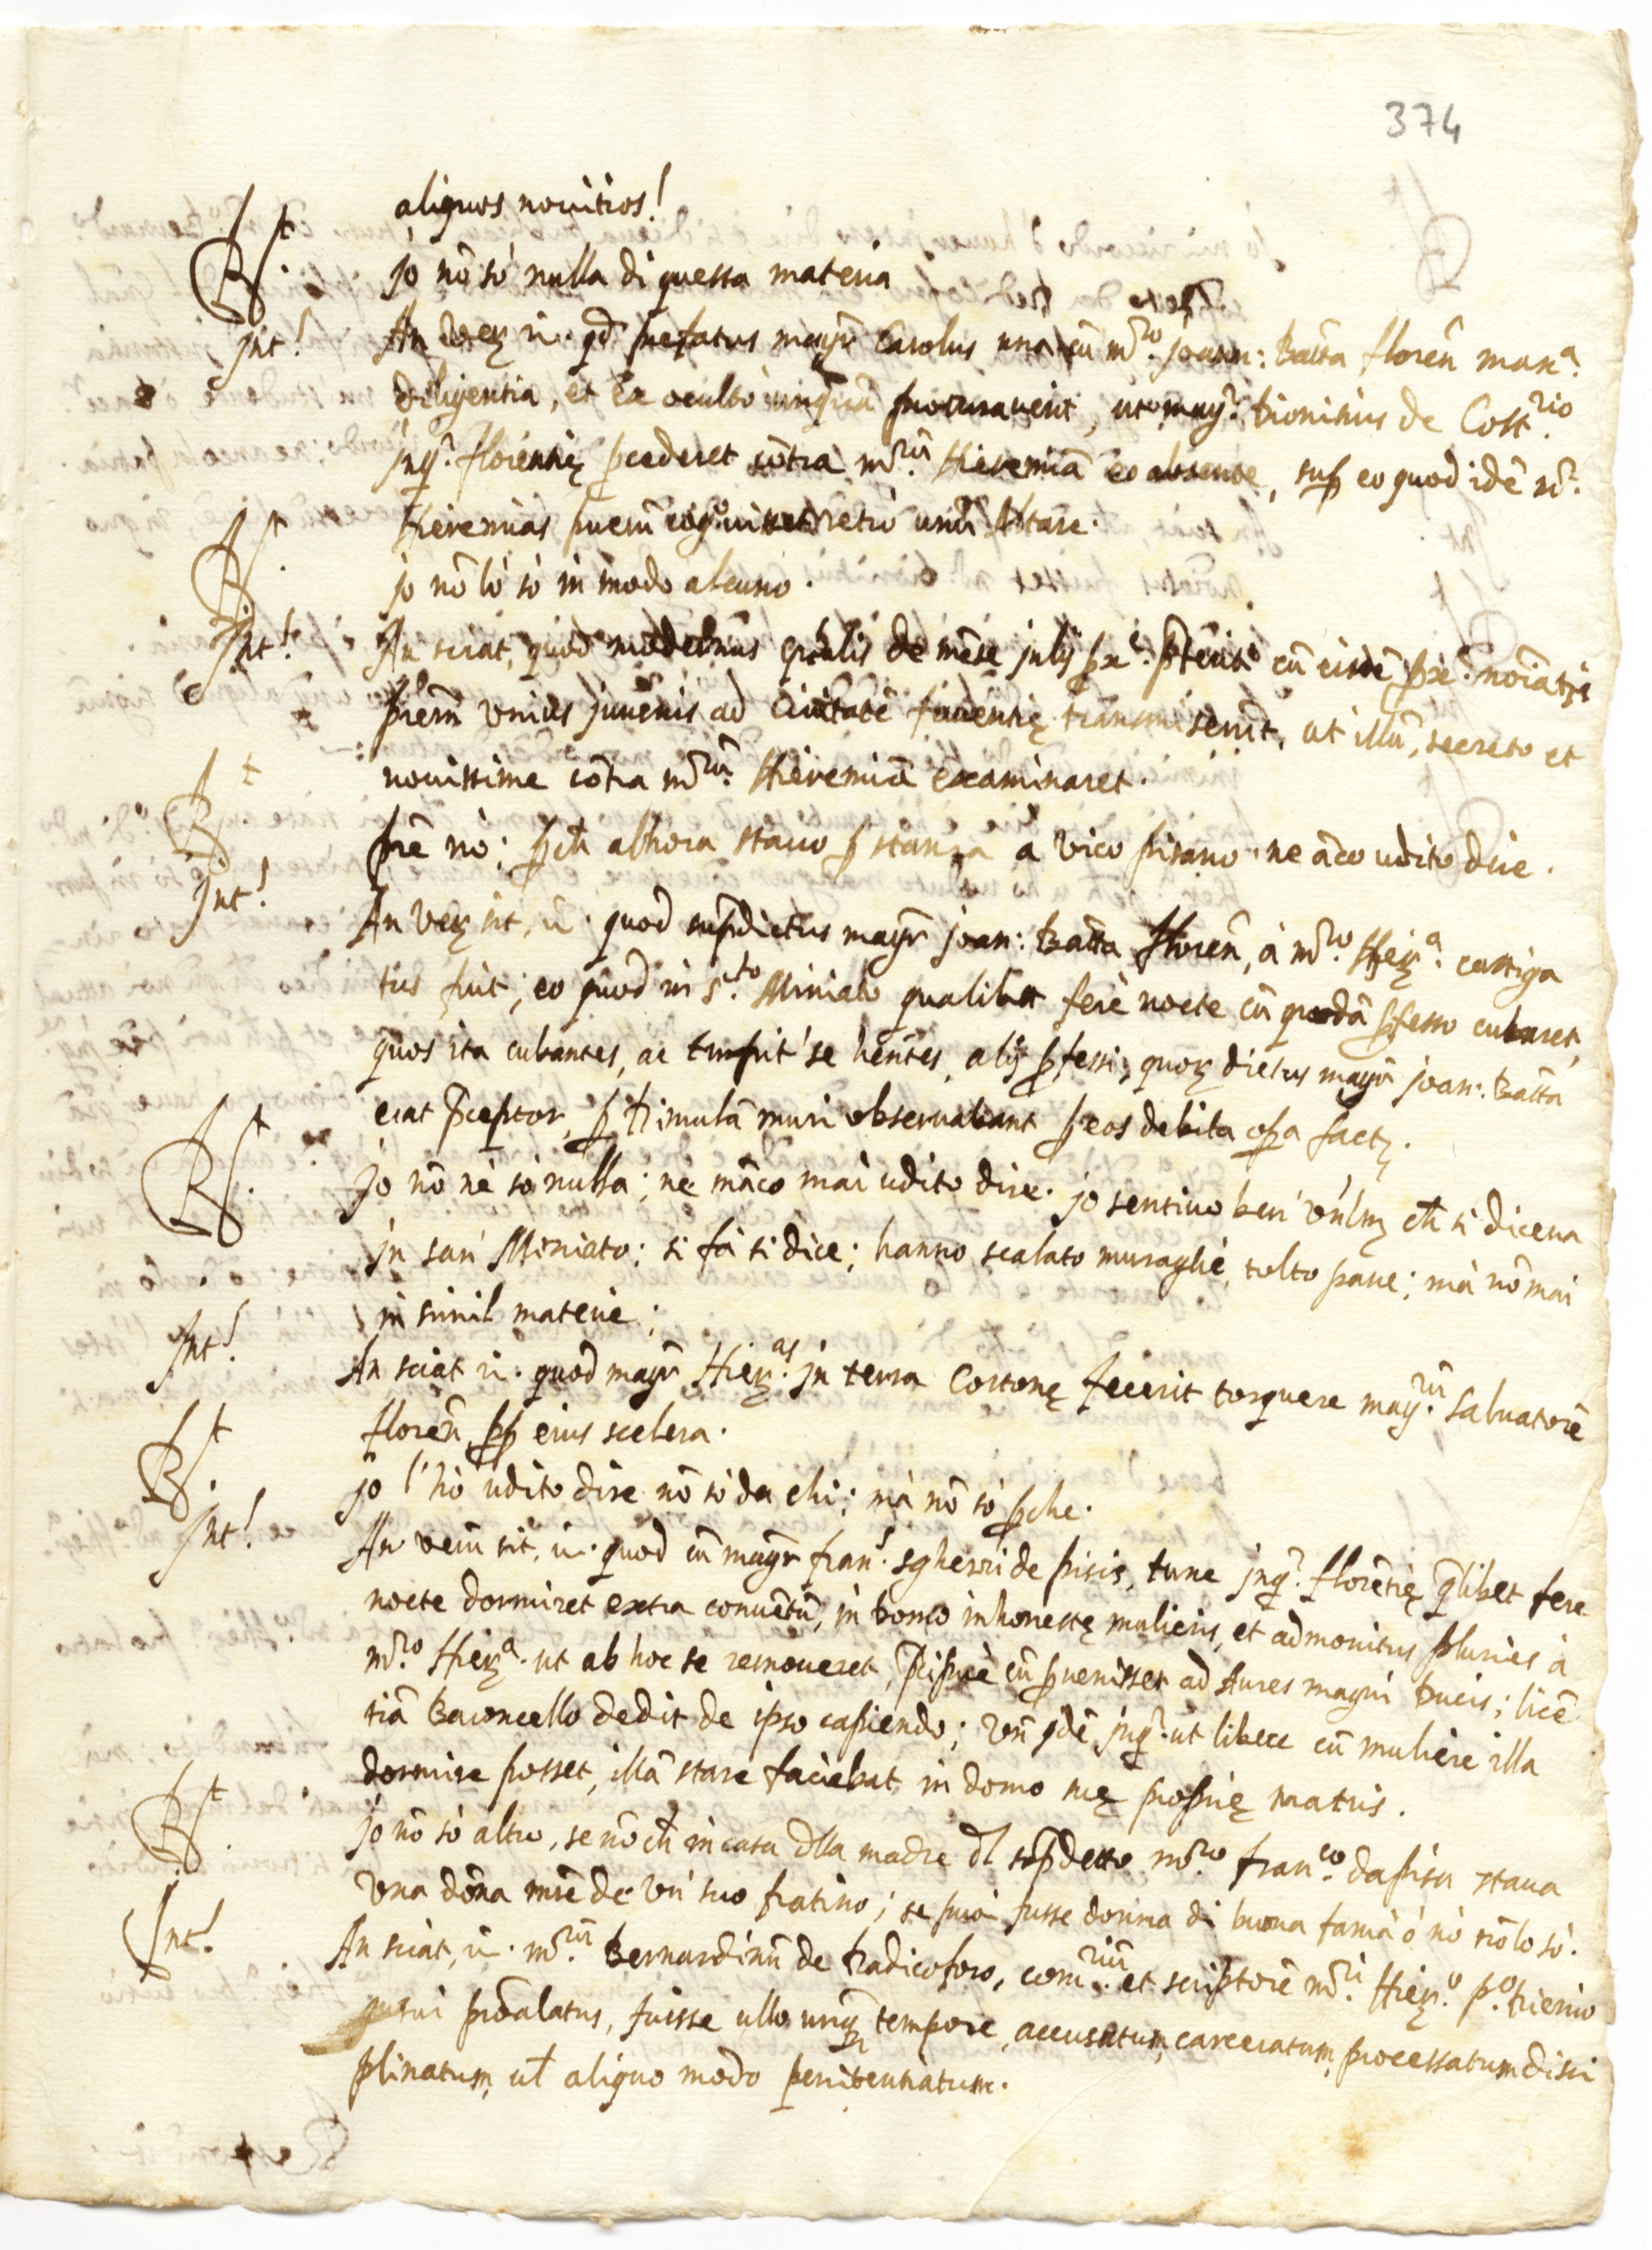 374
aliquos novitios!
Rt. jo nō sò nulla di questa materia
jnt! An veꝝ sit. qd prefatus magr̄ Carolus una cū mr̄o. joann: Batta florēn man.a
diligentia, et ex oculto inquā procuraverit, ut mag.r Dionisius de Cost.rio
jnq.r florentię pcederet cōtra mr̄um. Hieremiā eo absente, sup eo quod idē mr.
Hieremias puerū cognovisset retrò unū Altare.
Rt. jo nō lò sò in modo alcuno.
jnt! An sciat, quod modernus gnālis de mēse julij px.e pteriti cū eisdē pre.noīatis
prēm unius juvenis ad Civitatē faventię transmiserit, ut illū, secreto et
novissime cōtra mr̄um. Hieremiā examinaret.
Rt. prē nò; pch alhora stavo p stanza à vico pisano. ne āco udito dire.
jnt! An veꝝ sit, quod suprdictus magr̄ joan: Batta floren, à mr̄o. Hieꝝ.a castiga
tus fuit; eo quod in S.to Miniato qualibet ferè nocte cū quodā pfesso cubaret,
quos ita cubantes, ac turpit' se hēntes, alij pfessi, quoꝝ dictus magr̄ joan: Batta
erat pceptor, p rimulā muri observabant p eos debita opa facta.
Rt. jo nō nè sò nulla; ne māco mai udito dire. jo sentivo ben' un'lm̄ ch si diceva
jn san' Miniato: si fà si dice; hanno scalato muraglie, tolto pane; mà nō mai
in simil materie;
jnt! An sciat quod magr̄ Hieꝝ.as jn terra Cortonę fecerit torquere mag.rum Salvatorē
florēn, pp eius scelera.
Rt. jo l'hò udito dire nō sò da chi; mà nō sò pche.
jnt! An verū sit, quod cū magr̄ fran.s sgherri de pisis, tunc jnq.r florētię qlibet fere
nocte dormiret extra convētū, in domo inhonestę mulieris, et admonitus pluries à
mr̄o. Hieꝝ.a ut ab hoc se removeret, cū pvenisset ad Aures magni Ducis; licē
tiā Baroncello dedit de ipso capiendo; jnq.r ut libere cū muliere illa
dormire posset, illā stare faciebat in domo suę proprię matris.
Rt. jo nō sò altro, se nō ch in casa dlla madre dl sopdetto mr̄o fran.co da pisa stava
una dōna mrē de un' suo fratino; se poi fusse donna di buona fama ò nò nō lo sò.
Jnt! An sciat, mr̄um. Bernardinū de Radicoforo, com.rium et scriptorē mr̄i. Hieꝝ.
prōalatus, fuisse ullo unq tempore, accusatum, carceratum, processatum disci
plinatum, ul aliquo modo penitentiatum.